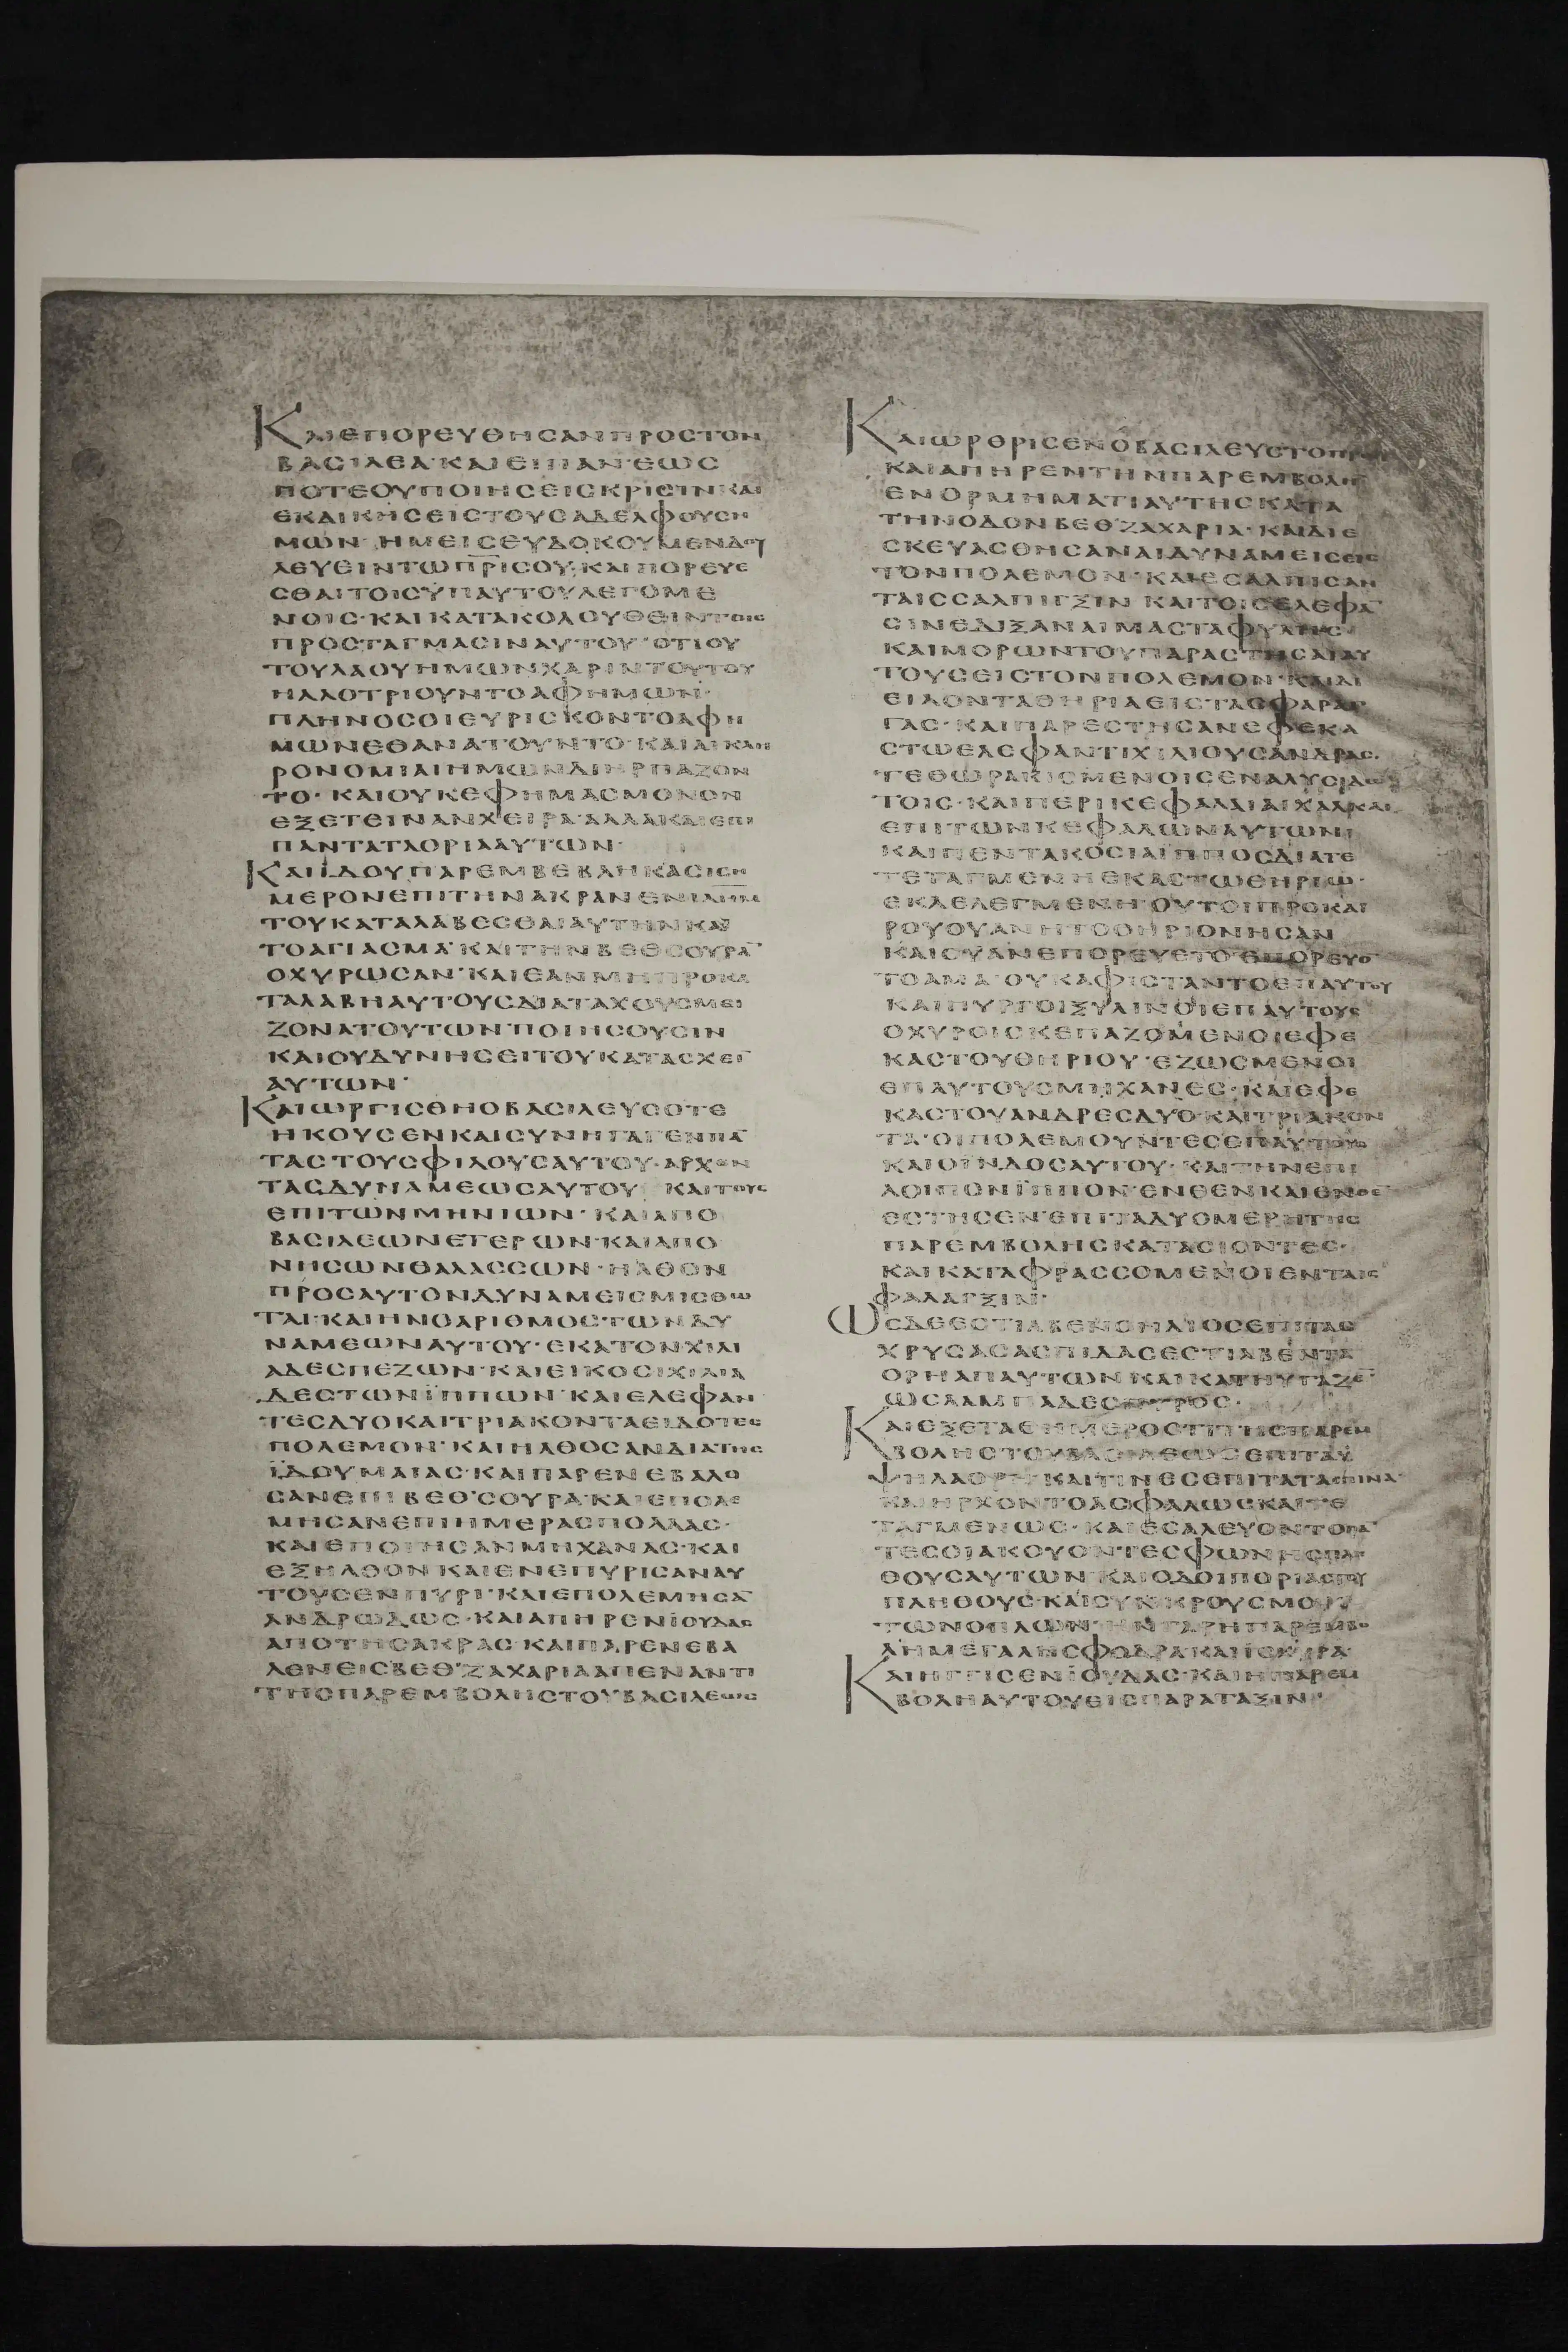 ΚΑΙΕΠΟΡΕΥΘΗΣΑΝΠΡΟΣΤΟΝ
ΒΑΣΙΛΕΑ·ΚΑΙΕΙΠΑΝ·ΕΩΣ
ΠΟΤΕΟΥΠΟΙΗΣΕΙΣΚΡΙΣΙΝΚΑΙ
ΕΚΔΙΚΗΣΕΙΣΤΟΥΣΑΔΕΛΦΟΥΣΗ
ΜΩΝ·ΗΜΕΙΣΕΥΔΟΚΟΥΜΕΝΔΟΥ
ΛΕΥΕΙΝΤΩΠΡΙΣΟΥ·ΚΑΙΠΟΡΕΥΕ
ΣΘΑΙΤΟΙΣΥΠΑΥΤΟΥΛΕΓΟΜΕ
ΝΟΙΣ·ΚΑΙΚΑΤΑΚΟΛΟΥΘΕΙΝΤΟΙΣ
ΠΡΟΣΤΑΓΜΑΣΙΝΑΥΤΟΥ·ΟΤΙΟΥ
ΤΟΥΛΑΟΥΗΜΩΝΧΑΡΙΝΤΟΥΤΟΥ
ΗΛΛΟΤΡΙΟΥΝΤΟΑΦΗΜΩΝ·
ΠΛΗΝΟΣΟΙΕΥΡΙΣΚΟΝΤΟΑΦΗ
ΜΩΝΕΘΑΝΑΤΟΥΝΤΟ·ΚΑΙΑΙΚΛΗ
ΡΟΝΟΜΙΑΙΗΜΩΝΔΙΗΡΠΑΖΟΝ
ΤΟ·ΚΑΙΟΥΚΕΦΗΜΑΣΜΟΝΟΝ
ΕΞΕΤΕΙΝΑΝΧΕΙΡΑ·ΑΛΛΑΚΑΙΕΠΙ
ΠΑΝΤΑΤΑΟΡΙΑΑΥΤΩΝ·
ΚΑΙΪΔΟΥΠΑΡΕΜΒΕΒΛΗΚΑΣΙΣΗ
ΜΕΡΟΝΕΠΙΤΗΝΑΚΡΑΝΕΝΙΛΗΜ
ΤΟΥΚΑΤΑΛΑΒΕΣΘΑΙΑΥΤΗΝΚΑΙ
ΤΟΑΓΙΑΣΜΑ·ΚΑΙΤΗΝΒΕΘΣΟΥΡΑ̅
ΟΧΥΡΩΣΑΝ·ΚΑΙΕΑΝΜΗΠΡΟΚΑ
ΤΑΛΑΒΗΑΥΤΟΥΣΔΙΑΤΑΧΟΥΣΜΕΙ
ΖΟΝΑΤΟΥΤΩΝΠΟΙΗΣΟΥΣΙΝ
ΚΑΙΟΥΔΥΝΗΣΕΙΤΟΥΚΑΤΑΣΧΕΙ̅
ΑΥΤΩΝ·
ΚΑΙΩΡΓΙΣΘΗΟΒΑΣΙΛΕΥΣΟΤΕ
ΗΚΟΥΣΕΝΚΑΙΣΥΝΗΓΑΓΕΝΠΑ̅
ΤΑΣΤΟΥΣΦΙΛΟΥΣΑΥΤΟΥ·ΑΡΧΟΝ
ΤΑΣΔΥΝΑΜΕΩΣΑΥΤΟΥ ΚΑΙΤΟΥΣ
ΕΠΙΤΩΝΜΗΝΙΩΝ·ΚΑΙΑΠΟ
ΒΑΣΙΛΕΩΝΕΤΕΡΩΝ·ΚΑΙΑΠΟ
ΝΗΣΩΝΘΑΛΑΣΣΩΝ·ΗΛΘΟΝ
ΠΡΟΣΑΥΤΟΝΔΥΝΑΜΕΙΣΜΙΣΘΩ
ΤΑΙ·ΚΑΙΗΝΟΑΡΙΘΜΟΣΤΩΝΔΥ
ΝΑΜΕΩΝΑΥΤΟΥ·ΕΚΑΤΟΝΧΙΛΙ
ΑΔΕΣΠΕΖΩΝ·ΚΑΙΕΙΚΟΣΙΧΙΛΙΑ
ΔΕΣΤΩΝΪΠΠΩΝ·ΚΑΙΕΛΕΦΑΝ
ΤΕΣΔΥΟΚΑΙΤΡΙΑΚΟΝΤΑΕΙΔΟΤΕΣ
ΠΟΛΕΜΟΝ·ΚΑΙΗΛΘΟΣΑΝΔΙΑΤΗΣ
ΪΔΟΥΜΑΙΑΣ·ΚΑΙΠΑΡΕΝΕΒΑΛΟ
ΣΑΝΕΠΙΒΕΘΣΟΥΡΑ·ΚΑΙΕΠΟΛΕ
ΜΗΣΑΝΕΠΙΗΜΕΡΑΣΠΟΛΛΑΣ·
ΚΑΙΕΠΟΙΗΣΑΝΜΗΧΑΝΑΣ·ΚΑΙ
ΕΞΗΛΘΟΝΚΑΙΕΝΕΠΥΡΙΣΑΝΑΥ
ΤΟΥΣΕΝΠΥΡΙ·ΚΑΙΕΠΟΛΕΜΗΣΑ̅
ΑΝΔΡΩΔΩΣ·ΚΑΙΑΠΗΡΕΝΪΟΥΔΑΣ
ΑΠΟΤΗΣΑΚΡΑΣ·ΚΑΙΠΑΡΕΝΕΒΑ
ΛΕΝΕΙΣΒΕΘΖΑΧΑΡΙΑΑΠΕΝΑΝΤΙ
ΤΗΣΠΑΡΕΜΒΟΛΗΣΤΟΥΒΑΣΙΛΕΩΣ
ΚΑΙΩΡΘΡΙΣΕΝΟΒΑΣΙΛΕΥΣΤΟΠΡΩΙ
ΚΑΙΑΠΗΡΕΝΤΗΝΠΑΡΕΜΒΟΛΗ̅
ΕΝΟΡΜΗΜΑΤΙΑΥΤΗΣΚΑΤΑ
ΤΗΝΟΔΟΝΒΕΘΖΑΧΑΡΙΑ·ΚΑΙΔΙΕ
ΣΚΕΥΑΣΘΗΣΑΝΑΙΔΥΝΑΜΕΙΣΕΙΣ
ΤΟΝΠΟΛΕΜΟΝ·ΚΑΙΕΣΑΛΠΙΣΑΝ
ΤΑΙΣΣΑΛΠΙΓΞΙΝ ΚΑΙΤΟΙΣΕΛΕΦΑ̅
ΣΙΝΕΔΙΞΑΝΑΙΜΑΣΤΑΦΥΛΗΣ
ΚΑΙΜΟΡΩΝΤΟΥΠΑΡΑΣΤΗΣΑΙΑΥ
ΤΟΥΣΕΙΣΤΟΝΠΟΛΕΜΟΝ·ΚΑΙΔΙ
ΕΙΛΟΝΤΑΘΗΡΙΑΕΙΣΤΑΣΦΑΡΑΓ
ΓΑΣ·ΚΑΙΠΑΡΕΣΤΗΣΑΝΕΦΕΚΑ
ΣΤΩΕΛΕΦΑΝΤΙΧΙΛΙΟΥΣΑΝΔΡΑΣ·
ΤΕΘΩΡΑΚΙΣΜΕΝΟΙΣΕΝΑΛΥΣΙΔΩ
ΤΟΙΣ·ΚΑΙΠΕΡΙΚΕΦΑΛΑΙΑΙΧΑΛΚΑΙ
ΕΠΙΤΩΝΚΕΦΑΛΩΝΑΥΤΩΝ·
ΚΑΙΠΕΝΤΑΚΟΣΙΑΙΠΠΟΣΔΙΑΤΕ
ΤΕΤΑΓΜΕΝΗΕΚΑΣΤΩΘΗΡΙΩ·
ΕΚΛΕΛΕΓΜΕΝΗ·ΟΥΤΟΙΠΡΟΚΑΙ
ΡΟΥΟΥΑΝΗΤΟΘΗΡΙΟΝΗΣΑΝ
ΚΑΙΟΥΑΝΕΠΟΡΕΥΕΤΟ·ΕΠΟΡΕΥΟ̅
ΤΟΑΜΑ·ΟΥΚΑΦΙΣΤΑΝΤΟΕΠΑΥΤΟΥ
ΚΑΙΠΥΡΓΟΙΞΥΛΙΝΟΙΕΠΑΥΤΟΥΣ
ΟΧΥΡΟΙΣΚΕΠΑΖΟΜΕΝΟΙΕΦΕ
ΚΑΣΤΟΥΘΗΡΙΟΥ·ΕΖΩΣΜΕΝΟΙ
ΕΠΑΥΤΟΥΣΜΗΧΑΝΕΣ·ΚΑΙΕΦΕ
ΚΑΣΤΟΥΑΝΔΡΕΣΔΥΟ·ΚΑΙΤΡΙΑΚΟΝ
ΤΑ·ΟΙΠΟΛΕΜΟΥΝΤΕΣΕΠΑΥΤΟΙΣ
ΚΑΙΟΪΝΔΟΣΑΥΤΟΥ·ΚΑΙΤΗΝΕΠΙ
ΛΟΙΠΟΝΪΠΠΟΝ·ΕΝΘΕΝΚΑΙΕΝΘΕ̅
ΕΣΤΗΣΕΝ·ΕΠΙΤΑΔΥΟΜΕΡΗΤΗΣ
ΠΑΡΕΜΒΟΛΗΣΚΑΤΑΣΙΟΝΤΕΣ·
ΚΑΙΚΑΤΑΦΡΑΣΣΟΜΕΝΟΙΕΝΤΑΙΣ
ΦΑΛΑΓΞΙΝ·
ΩΣΔΕΕΣΤΙΛΒΕΝΟΗΛΙΟΣΕΠΙΤΑΣ
ΧΡΥΣΑΣΑΣΠΙΔΑΣΕΣΤΙΛΒΕΝΤΑ
ΟΡΗΑΠΑΥΤΩΝΚΑΙΚΑΤΗΥΓΑΖΕ̅
ΩΣΛΑΜΠΑΔΕΣΠΥΡΟΣ·
ΚΑΙΕΞΕΤΑΘΗΜΕΡΟΣΤΙΤΗΣΠΑΡΕΜ
ΒΟΛΗΣΤΟΥΒΑΣΙΛΕΩΣΕΠΙΤΑΥ
ΨΗΛΑΟΡΗ·ΚΑΙΤΙΝΕΣΕΠΙΤΑΤΑΠΙΝΑ
ΚΑΙΗΡΧΟΝΤΟΑΣΦΑΛΩΣΚΑΙΤΕ
ΤΑΓΜΕΝΩΣ·ΚΑΙΕΣΑΛΕΥΟΝΤΟΠΑ̅
ΤΕΣΟΙΑΚΟΥΟΝΤΕΣΦΩΝΗΣΠΛΗ
ΘΟΥΣΑΥΤΩΝ·ΚΑΙΟΔΟΙΠΟΡΙΑΣΤΟΥ
ΠΛΗΘΟΥΣ·ΚΑΙΣΥΝΚΡΟΥΣΜΟΥ
ΤΩΝΟΠΛΩΝ·ΗΝΓΑΡΗΠΑΡΕΜΒΟ
ΛΗΜΕΓΑΛΗΣΦΟΔΡΑΚΑΙΙΣΧΥΡΑ
ΚΑΙΗΓΓΙΣΕΝΪΟΥΔΑΣ·ΚΑΙΗΠΑΡΕΜ
ΒΟΛΗΑΥΤΟΥΕΙΣΠΑΡΑΤΑΞΙΝ·